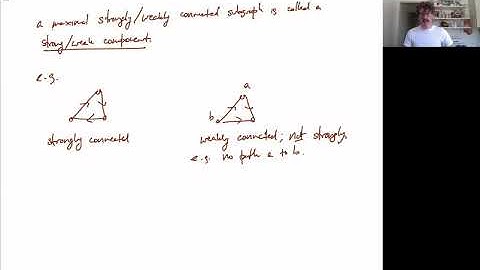 a maximal strongly/weakly connected subgraph is called a
strong/weak component.
e.g.
a
b
strongly connected
weakly connected, not strongly,
e.g. no path a to b.